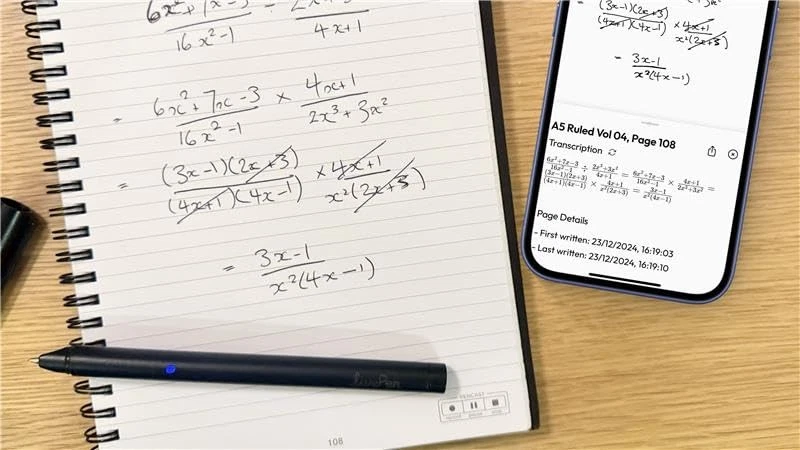 6x² + 7x - 3 ÷ 2x³ + 3x²
16x² - 1 4x+1
= 6x² + 7x - 3 × 4x+1
16x² - 1 2x³ + 3x²
= (3x-1)(2x+3) × 4x+1
(4x+1)(4x-1) x²(2x+3)
= 3x-1
x²(4x-1)
PENCAST
108
(3x-1)(2x+3) × 4x+1
(4x+1)(4x-1) x²(2x+3)
= 3x-1
x²(4x-1)
A5 Ruled Vol 04, Page 108
Transcription
6x²+7x-3 ÷ 2x³+3x² = 6x²+7x-3 × 4x+1 =
16x²-1 4x+1 16x²-1 2x³+3x²
(3x-1)(2x+3) × 4x+1 = 3x-1
(4x+1)(4x-1) x²(2x+3) x²(4x-1)
Page Details
- First written: 23/12/2024, 16:19:03
- Last written: 23/12/2024, 16:19:10